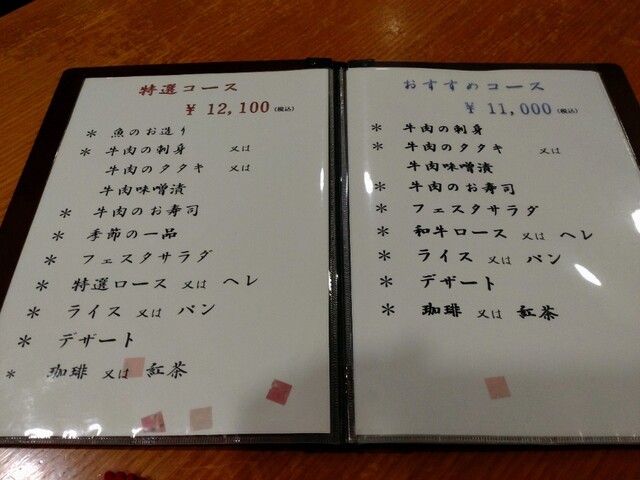 特選コース
¥ 12,100(税込)
* 魚のお造り
* 牛肉の刺身 又は
牛肉のタタキ 又は
牛肉味噌漬
* 牛肉のお寿司
* 季節の一品
* フェスタサラダ
* 特選ロース 又は ヘレ
* ライス 又は パン
* デザート
* 珈琲 又は 紅茶
おすすめコース
¥ 11,000(税込)
* 牛肉の刺身
* 牛肉のタタキ 又は
牛肉味噌漬
* 牛肉のお寿司
* フェスタサラダ
* 和牛ロース 又は ヘレ
* ライス 又は パン
* デザート
* 珈琲 又は 紅茶